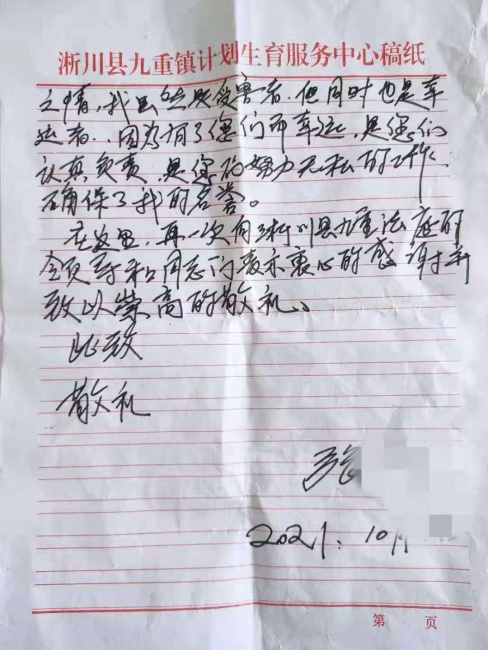 淅川县九重镇计划生育服务中心稿纸
之情,我虽然是受害者,但同时也是幸
运者,因为有了你们而幸运,是您们
认真负责,是您的努力无私的工作,
确保了我的名誉。
在这里,再一次向淅川县九重法庭的
领导和同志们表示衷心的感谢并
致以崇高的敬礼。
此致
敬礼
2021. 10
第 页